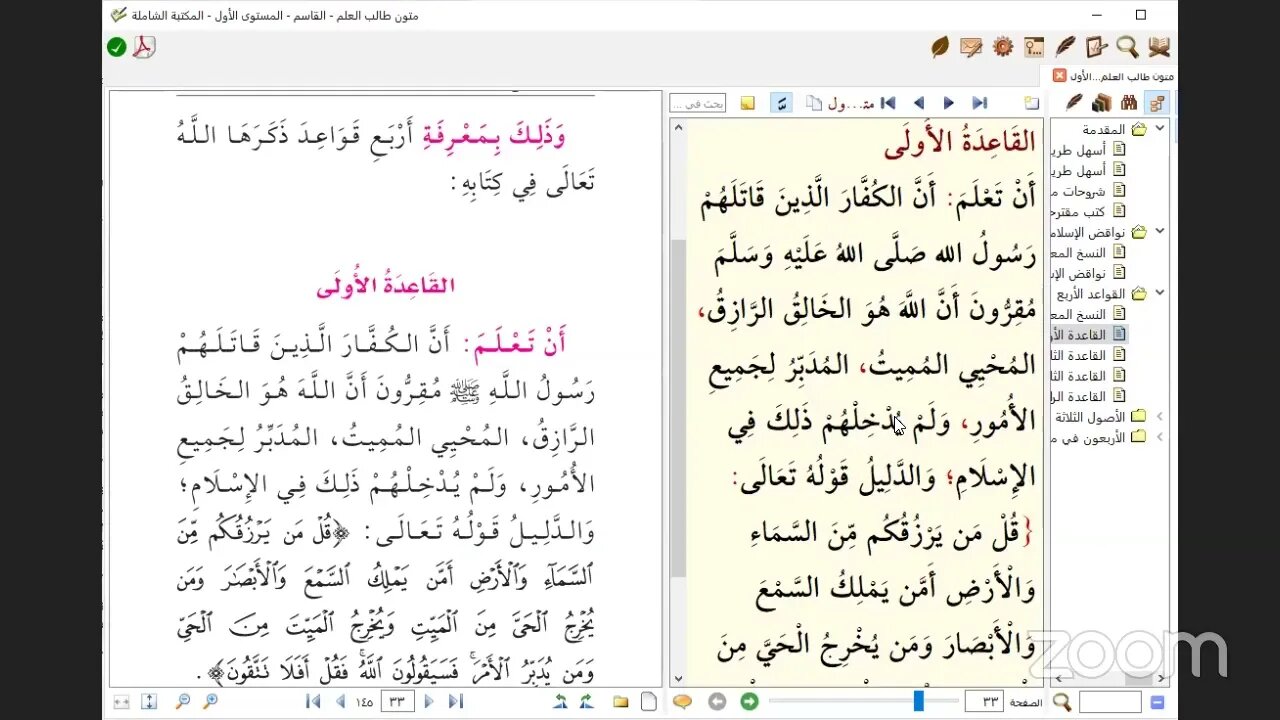 متون طالب العلم - القاسم - المستوى الأول - المكتبة الشاملة
متون طالب العلم...الأول
متـ...ـول
بحث في ...
المقدمة
أسهل طري
أسهل طري
شروحات م
كتب مقترح
نواقض الإسلام
النسخ المع
نواقض الإس
القواعد الأربع
النسخ المع
القاعدة الأو
القاعدة الثا
القاعدة الثا
القاعدة الرا
الأصول الثلاثة
الأربعون في م
القَاعِدَةُ الأُولَى
أَنْ تَعْلَمَ: أَنَّ الكُفَّارَ الَّذِينَ قَاتَلَهُمْ
رَسُولُ الله صَلَّى اللهُ عَلَيْهِ وَسَلَّمَ
مُقِرُّونَ أَنَّ اللَّهَ هُوَ الخَالِقُ الرَّازِقُ،
المُحْيِي المُمِيتُ، المُدَبِّرُ لِجَمِيعِ
الأُمُورِ، وَلَمْ يُدْخِلْهُمْ ذَلِكَ فِي
الإِسْلَامِ؛ وَالدَّلِيلُ قَوْلُهُ تَعَالَى:
{قُلْ مَن يَرْزُقُكُم مِّنَ السَّمَاءِ
وَالْأَرْضِ أَمَّن يَمْلِكُ السَّمْعَ
وَالْأَبْصَارَ وَمَن يُخْرِجُ الْحَيَّ مِنَ
وَذَلِكَ بِمَعْرِفَةِ أَرْبَعِ قَوَاعِدَ ذَكَرَهَا اللَّهُ
تَعَالَى فِي كِتَابِهِ:
القَاعِدَةُ الأُولَى
أَنْ تَعْلَمَ: أَنَّ الكُفَّارَ الَّذِينَ قَاتَلَهُمْ
رَسُولُ اللَّهِ ﷺ مُقِرُّونَ أَنَّ اللَّهَ هُوَ الخَالِقُ
الرَّازِقُ، المُحْيِي المُمِيتُ، المُدَبِّرُ لِجَمِيعِ
الأُمُورِ، وَلَمْ يُدْخِلْهُمْ ذَلِكَ فِي الإِسْلَامِ؛
وَالدَّلِيلُ قَوْلُهُ تَعَالَى: ﴿قُلْ مَن يَرْزُقُكُم مِّنَ
السَّمَاءِ وَالْأَرْضِ أَمَّن يَمْلِكُ السَّمْعَ وَالْأَبْصَارَ وَمَن
يُخْرِجُ الْحَيَّ مِنَ الْمَيِّتِ وَيُخْرِجُ الْمَيِّتَ مِنَ الْحَيِّ
وَمَن يُدَبِّرُ الْأَمْرَ فَسَيَقُولُونَ اللَّهُ فَقُلْ أَفَلَا تَتَّقُونَ﴾.
الصفحة ٣٣
٣٣ ١٤٥
zoom